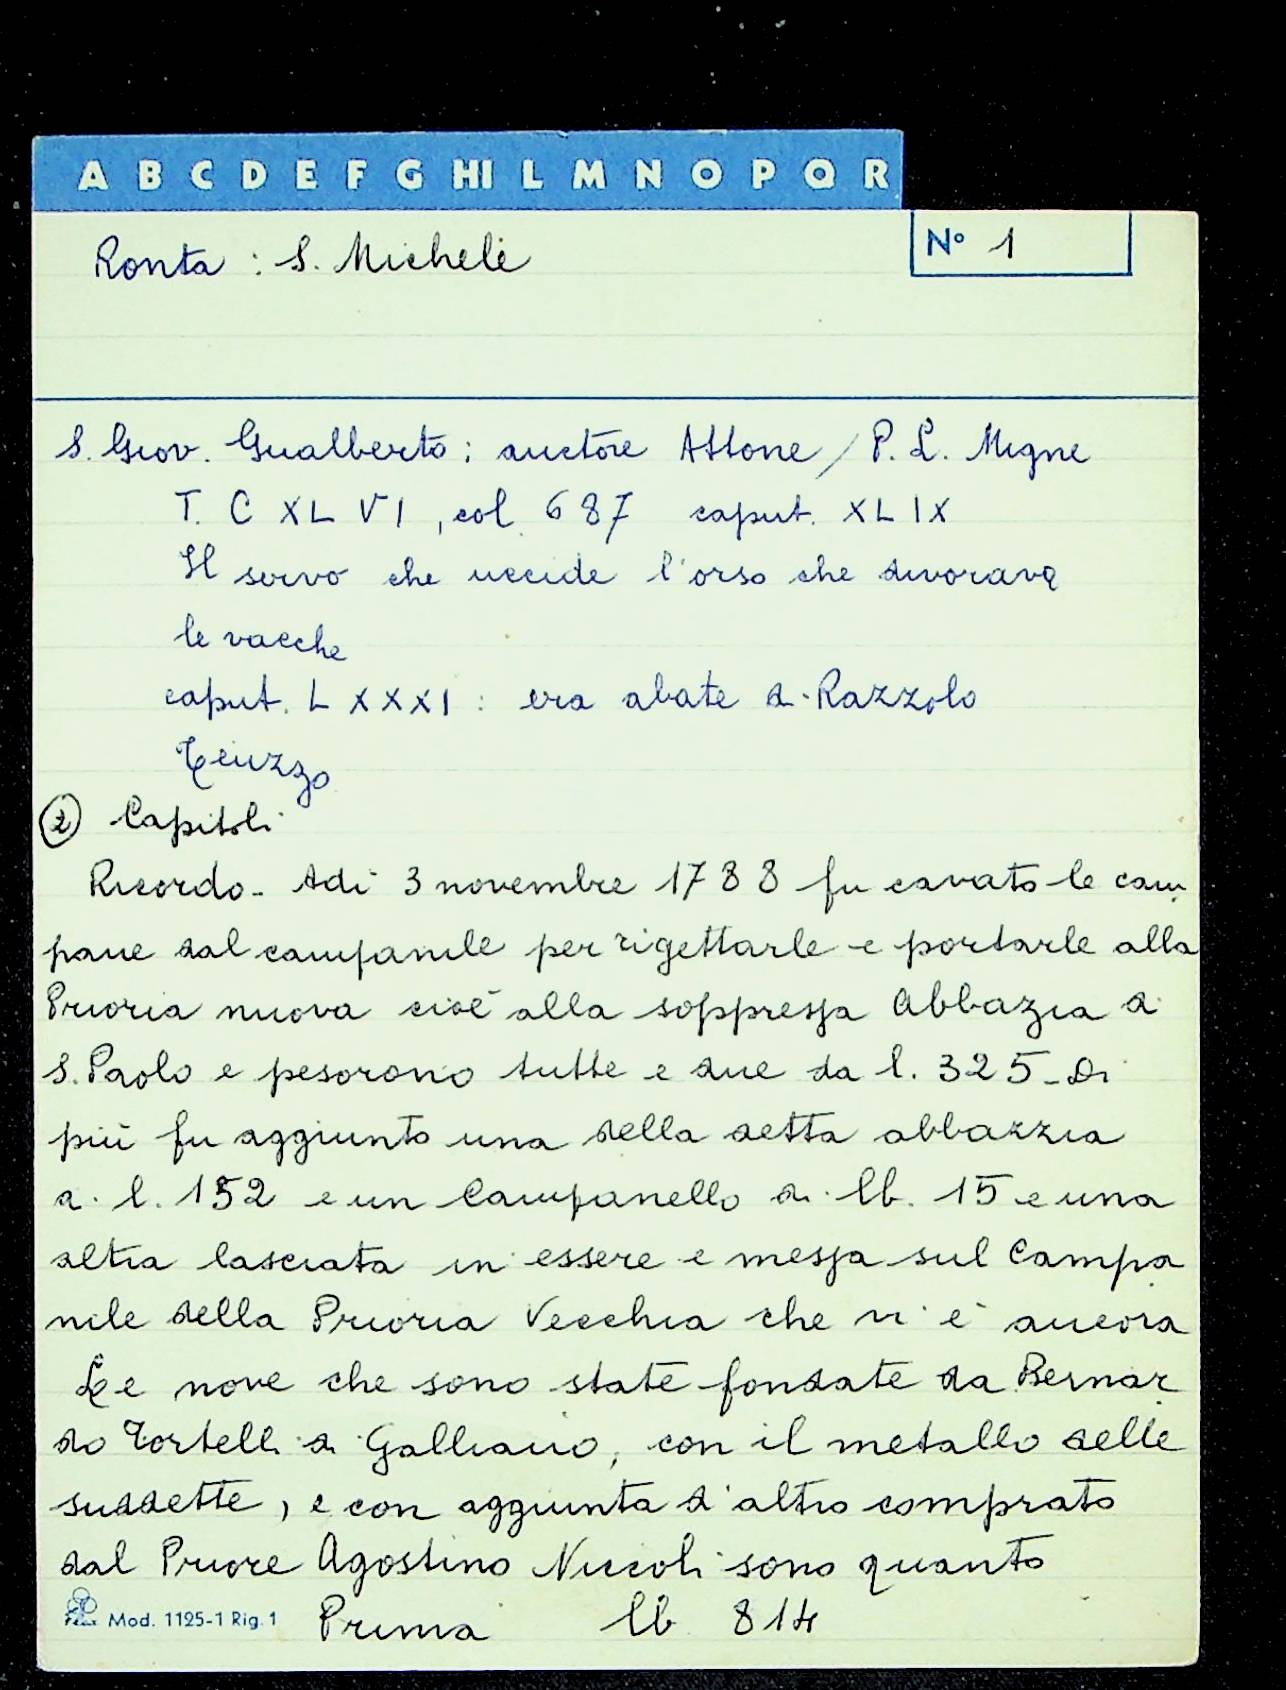 A B C D E F G HI L M N O P Q R
Ronta : S. Michele
N° 1
S. Giov. Gualberto; auctore Attone / P. L. Migne
T. C XL VI, col. 687 caput. XLIX
Il servo che uccide l'orso che divorava
le vacche
caput. LXXXI : era abate di Razzolo
Teuzzo
② Capitoli
Ricordo - Adi 3 novembre 1788 fu cavato le cam
pane dal campanile per rigettarle e portarle alla
Prioria nuova cioè alla soppressa Abbazia di
S. Paolo e pesorono tutte e due da l. 325 - Di
più fu aggiunto una della detta abbazzia
di l. 152 e un Campanello di lb. 15 e una
altra lasciata in essere e messa sul Campa
nile della Prioria Vecchia che vi è ancora
Le nove che sono state fondate da Bernar
do Tortelli di Galliano, con il metallo delle
suddette, e con aggiunta d'altro comprato
dal Priore Agostino Niccoli sono quanto
Mod. 1125-1 Rig. 1
Prima lb 814